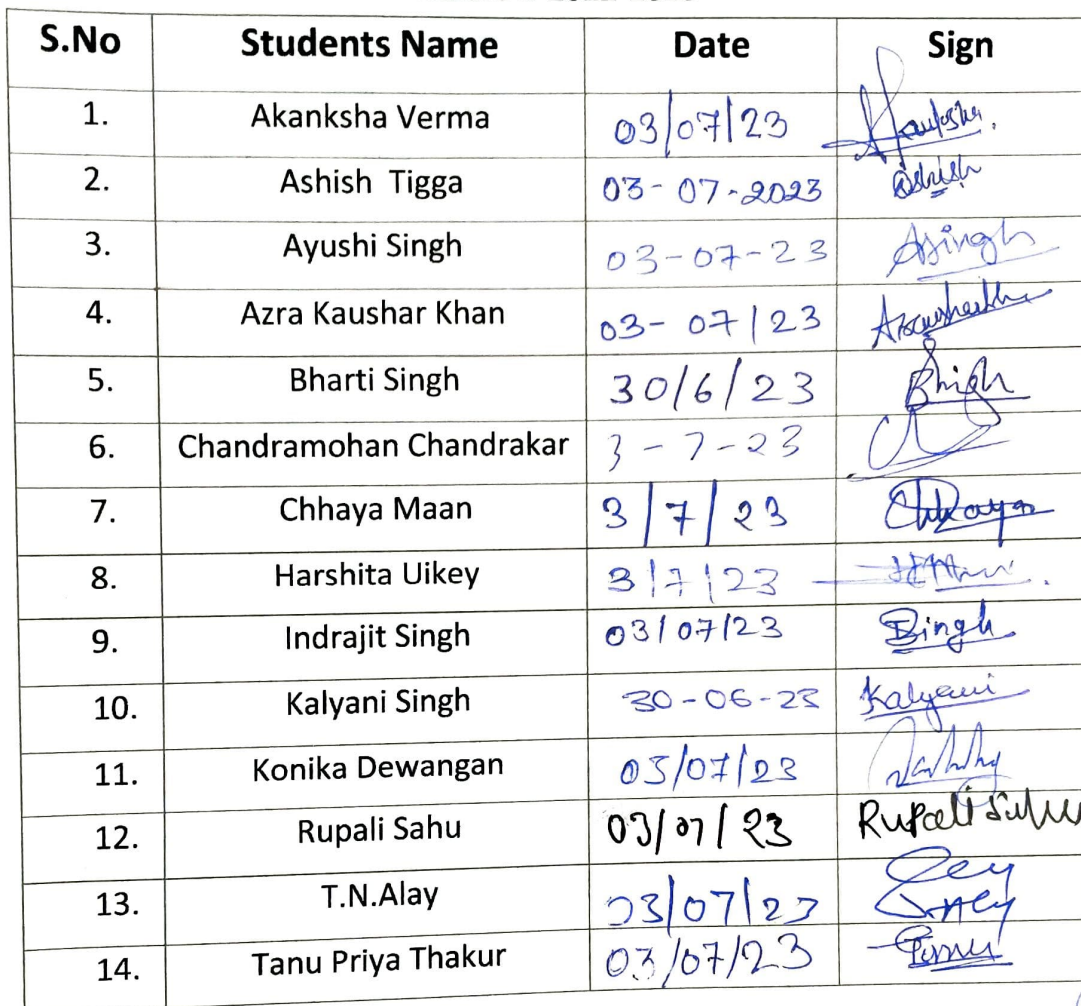 S.No Students Name Date Sign
1. Akanksha Verma 03/07/23
2. Ashish Tigga 03-07-2023 Ashish
3. Ayushi Singh 03-07-23 Asingh
4. Azra Kaushar Khan 03-07/23
5. Bharti Singh 30/6/23
6. Chandramohan Chandrakar 3-7-23
7. Chhaya Maan 3/7/23 Chhaya
8. Harshita Uikey 3/7/23
9. Indrajit Singh 03/07/23
10. Kalyani Singh 30-06-23 Kalyani
11. Konika Dewangan 03/07/23
12. Rupali Sahu 03/07/23 Rupali Sahu
13. T.N.Alay 03/07/23
14. Tanu Priya Thakur 03/07/23